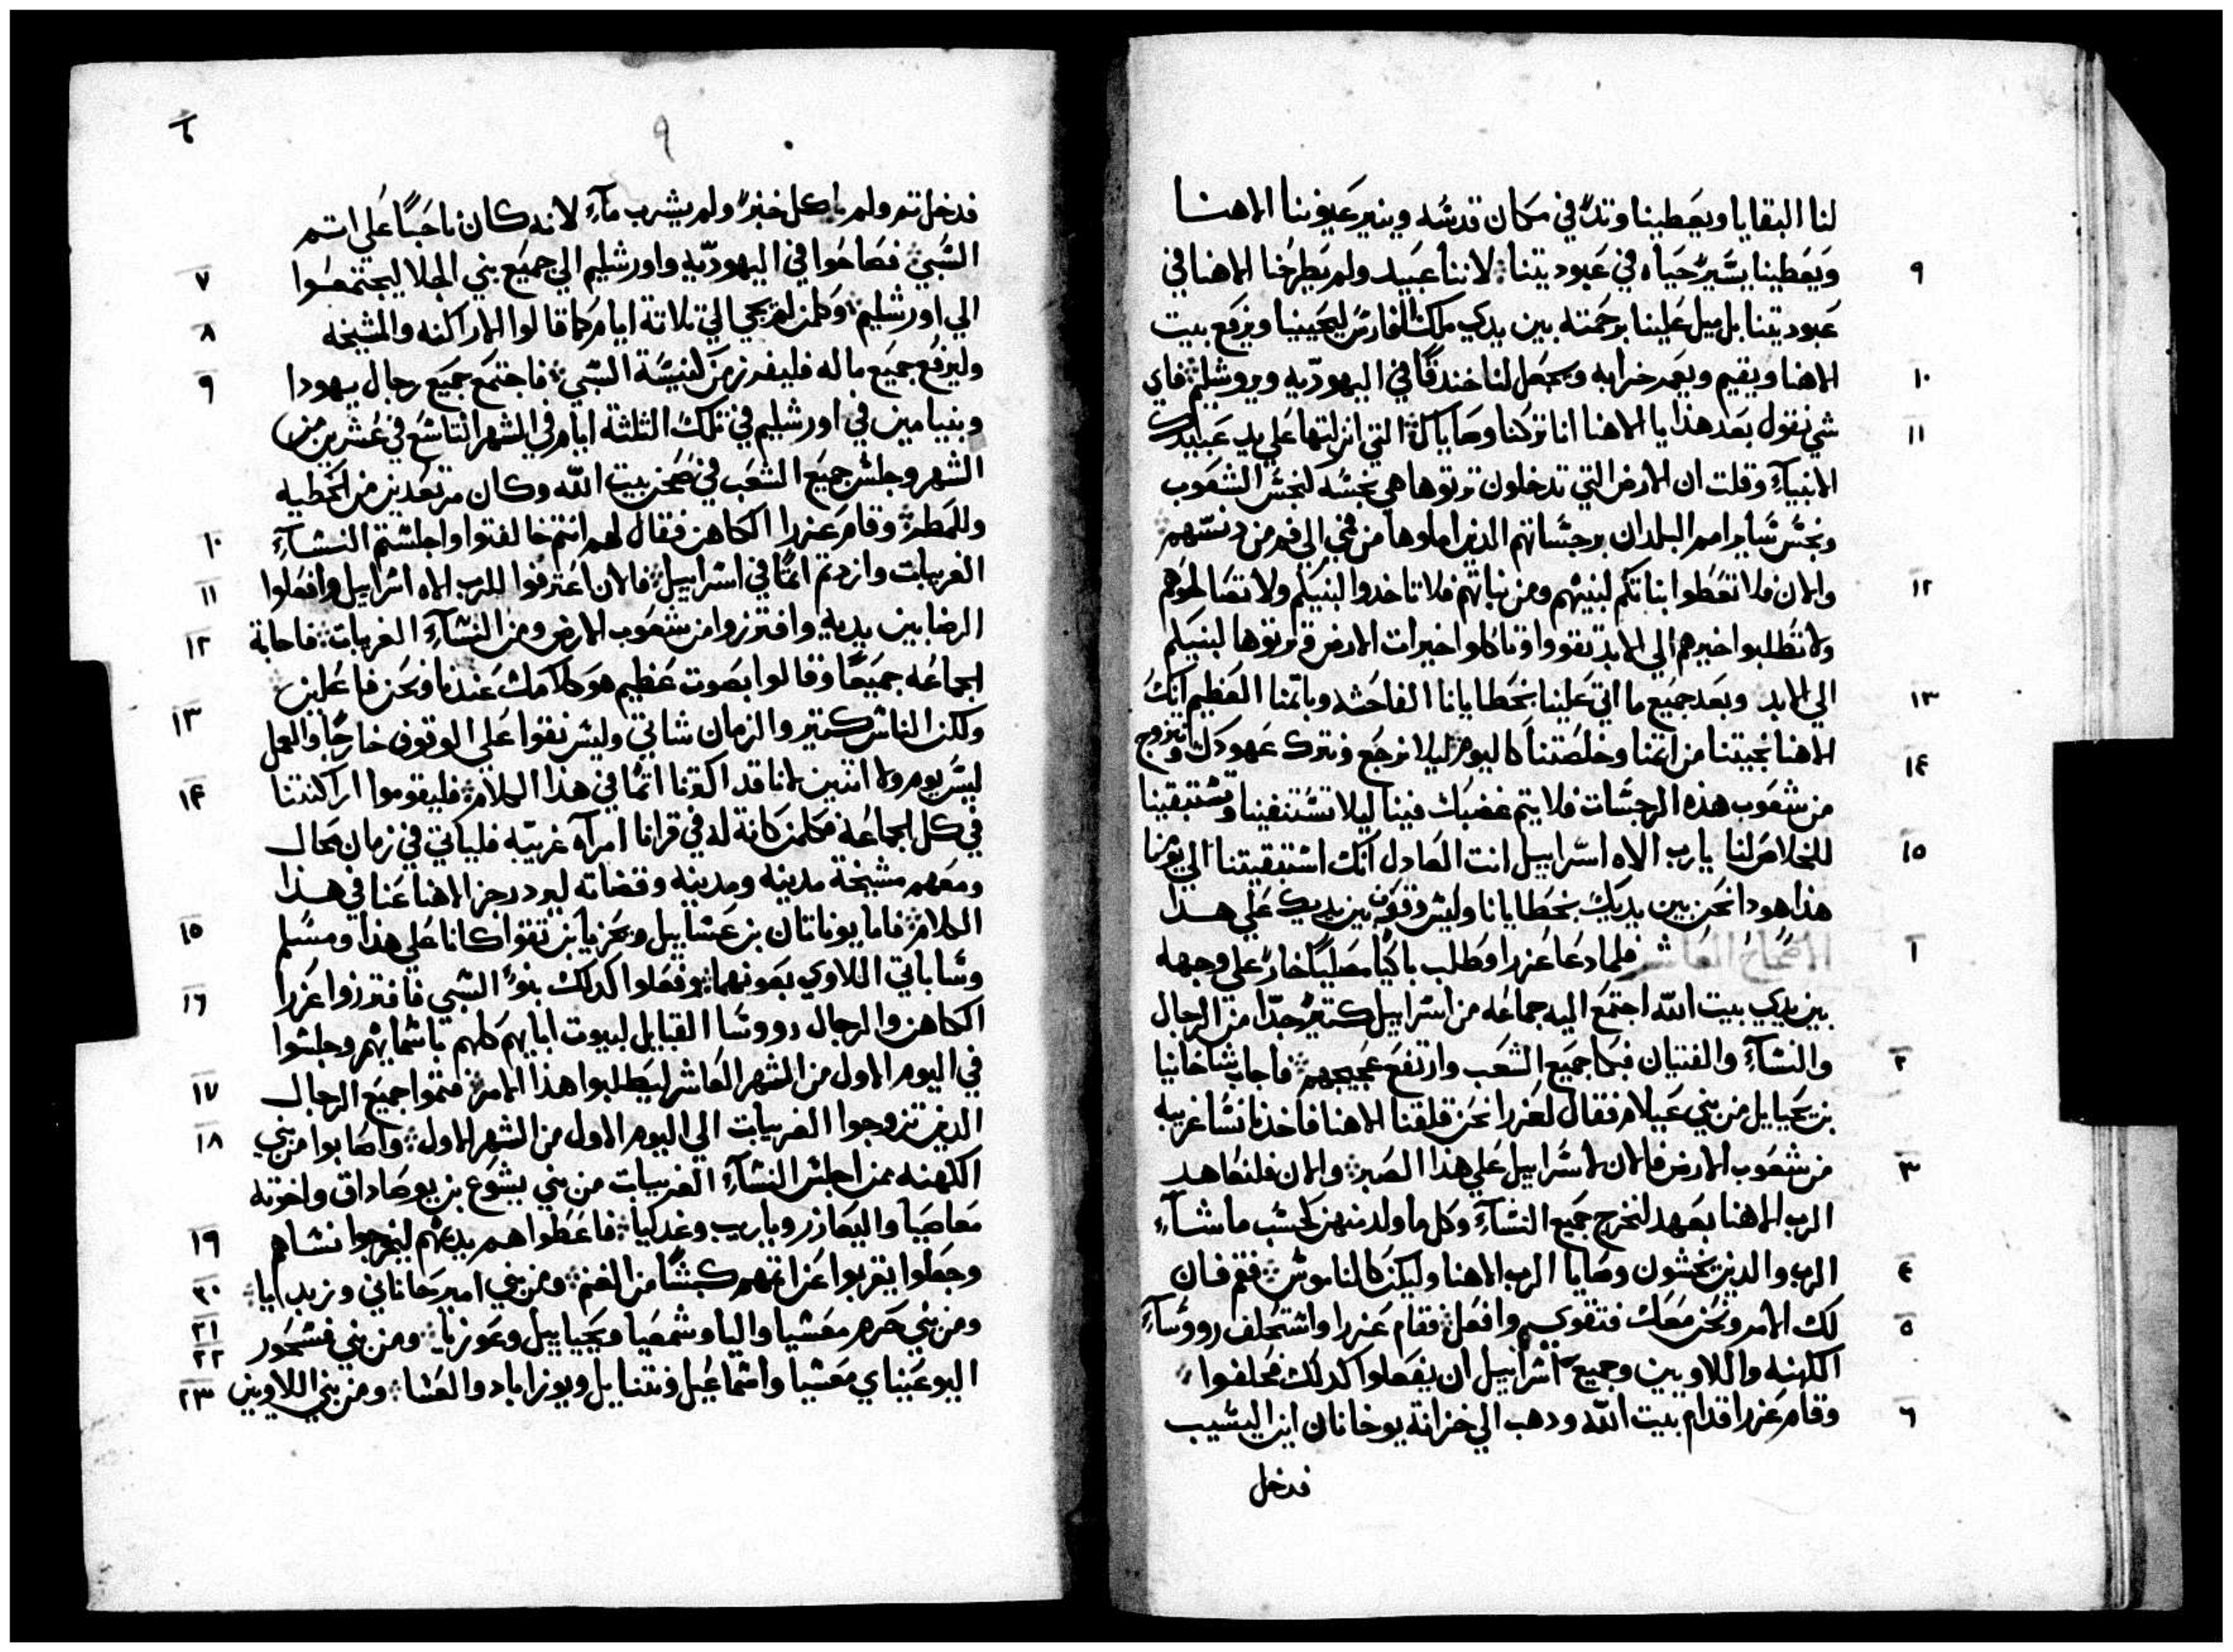 لنا البقايا ويعطينا وتدًا في مكان قدسه وينير عيوننا الاهنا
٩ ويعطينا يسير حياه في عبوديتنا لاننا عبيد ولم يطرحنا الاهنا في
عبوديتنا بل ميل علينا برحمته بين يدي ملك الفارس ليحيينا ويرفع بيت
١٠ الاهنا ويقيم ويعمر خرابه ويجعل لنا خندقًا في اليهوديه ويروشليم فاي
١١ شي نقول بعد هذا يا الاهنا انا تركنا وصاياك التي انزلتها علي يد عبيدك
الانبيآء وقلت ان الارض التي تدخلون ترتوها هي نجسه كنجس الشعوب
ونجس ساير امم البلدان برجساتهم الذين املوها من فم الي فم من دنسهم
١٢ والان فلا تعطوا بناتكم لبنيهم ومن بناتهم فلا تاخدوا لبنيكم ولا تصالحوهم
ولا تطلبوا خيرهم الي الابد تقووا وتاكلوا خيرات الارض وترتوها لبنيكم
١٣ الي الابد وبعد جميع ما اتي علينا بخطايانا الفاحشه وباتمنا العظيم انك
١٤ الاهنا نجيتنا من اتمنا وخلصتنا كاليوم ليلا نرجع ونترك عهودك ونتزوج
من شعوب هذه الرجسات فلا يتم غضبك فينا ليلا تستنفينا وتستبقينا
١٥ للخلاص لنا يارب الاه اسراييل انت العادل انك استبقيتنا الي يومنا
هذا هودا نحن بين يديك بخطايانا وليس وقوف بين يديك علي هذا
١ الاصحاح العاشر فلما دعا عزرا وطلب باكيًا مصليًا خارّ علي وجهه
بين يدي بيت الله اجتمع اليه جماعه من اسراييل كتير جدًا من الرجال
٢ والنسآء والفتيان فبكا جميع الشعب وارتفع عجيجهم فاجاب شاخانيا
بن يحياييل من بني عيلام فقال لعزرا نحن قلقنا الاهنا فاخدنا نسا غريبه
٣ من شعوب الارض فالان لاسراييل علي هذا الصبر والان فلنعاهد
الرب الاهنا بعهد لنخرج جميع النسآء وكل ما ولد منهن كحسب ما شآء
٤ الرب والدين يخشون وصايا الرب الاهنا وليكن كالناموس فقم فان
٥ لك الامر ونحن معك فتقوي وافعل فقام عزرا واستحلف رووسآء
الكهنه واللاويين وجميع اسراييل ان يفعلوا كدلك فحلفوا
٦ وقام عزرا قدام بيت الله ودهب الي خزانة يوخانان ابن اليشيب
فدخل
٩
فدخل تم ولم ياكل خبزً ولم يشرب مآء لانه كان ناحبًا علي اتم
٧ السبي فصاحوا في اليهوديه واورشليم الي جميع بني الجلا ليجتمعوا
٨ الي اورشليم وكلمن لم يجي الي تلاتة ايام كما قالوا الاراكنه والمشيخه
٩ وليرفع جميع ماله فليفرز من كنيسة السبي فاجتمع جميع رجال يهودا
وبنيامين في اورشليم في تلك التلتة ايام في الشهر التاسع في عشرين من
الشهر وجلس جميع الشعب في صحن بيت الله وكان مرتعدين من الخطيه
١٠ وللمطر وقام عزرا الكاهن فقال لهم انتم خالفتوا واجلستم النسآء
١١ الغريبات وازدتم اتمًا في اسراييل فالان اعترفوا للرب الاه اسراييل وافعلوا
١٢ الرضا بين يديه وافترزوا من شعوب الارض ومن النسآء الغريبات فاجابة
الجماعه جميعًا وقالوا بصوت عظيم هو كلامك عندنا ونحن فاعلين
١٣ ولكن الناس كتير والزمان شاتي وليس نقوا علي الوقوف خارجًا والعمل
١٤ ليس يوم ولا اتنين لانا قد اكترنا اتمًا في هذا الكلام فليقوموا اراكنتنا
في كل الجماعه فكلمن كانة له في قرانا امرآه غريبه فلياتي في زمان محال
ومعهم مشيخة مدينه ومدينه وقضاته ليرد رجز الاهنا عنا في هذا
١٥ الكلام فاما يوناتان بن عساييل ويحزيا بن تقوا كانا علي هذا ومسلم
١٦ وساباتي اللاوي بعونهما وفعلوا كدلك بنوّ السبي فافترزوا عزرا
الكاهن والرجال رووسا القبايل لبيوت ابايهم كلهم باسمايهم وجلسوا
١٧ في اليوم الاول من الشهر العاشر ليطلبوا هذا الامر فتموا جميع الرجال
١٨ الدين تزوجوا الغريبات الي اليوم الاول من الشهر الاول واصابوا من بني
الكهنه ممن اجلس النسآء الغريبات من بني يشوع بن يوصاداق واخوته
١٩ معاصيا واليعازر وياريب وغدليا فاعطوا هم يديهم ليخرجوا نساهم
٢٠ وجعلوا يقربوا عن اتمهم كبشًا من الغنم ومن بني امير حاناني وزبدايا
٢١ ومن بني حرم معسيا واليا وشمعيا ويحياييل وعوزيا ومن بني فسحور
٢٢
٢٣ اليوعيناي معسيا واسماعيل ونتناييل ويوزاباد والعسا ومن بني اللاويين